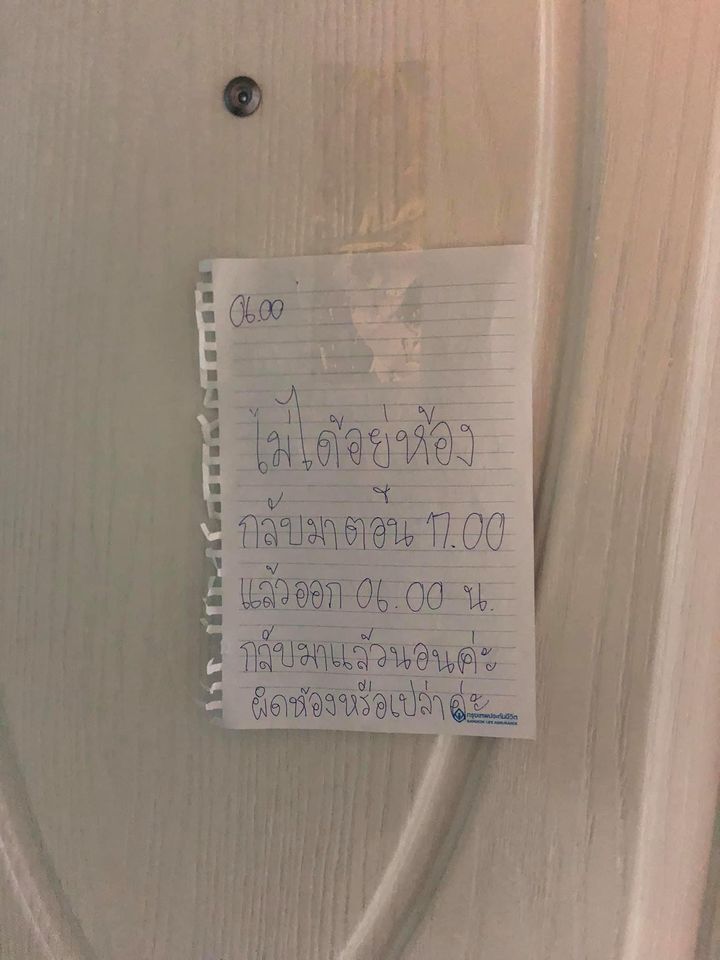 06.00
ไม่ได้อยู่ห้อง
กลับมาตอน 17.00
แล้วออก 06.00 น.
กลับมาแล้วนอนค่ะ
ผิดห้องหรือเปล่าค่ะ
กรุงเทพประกันชีวิต
BANGKOK LIFE ASSURANCE